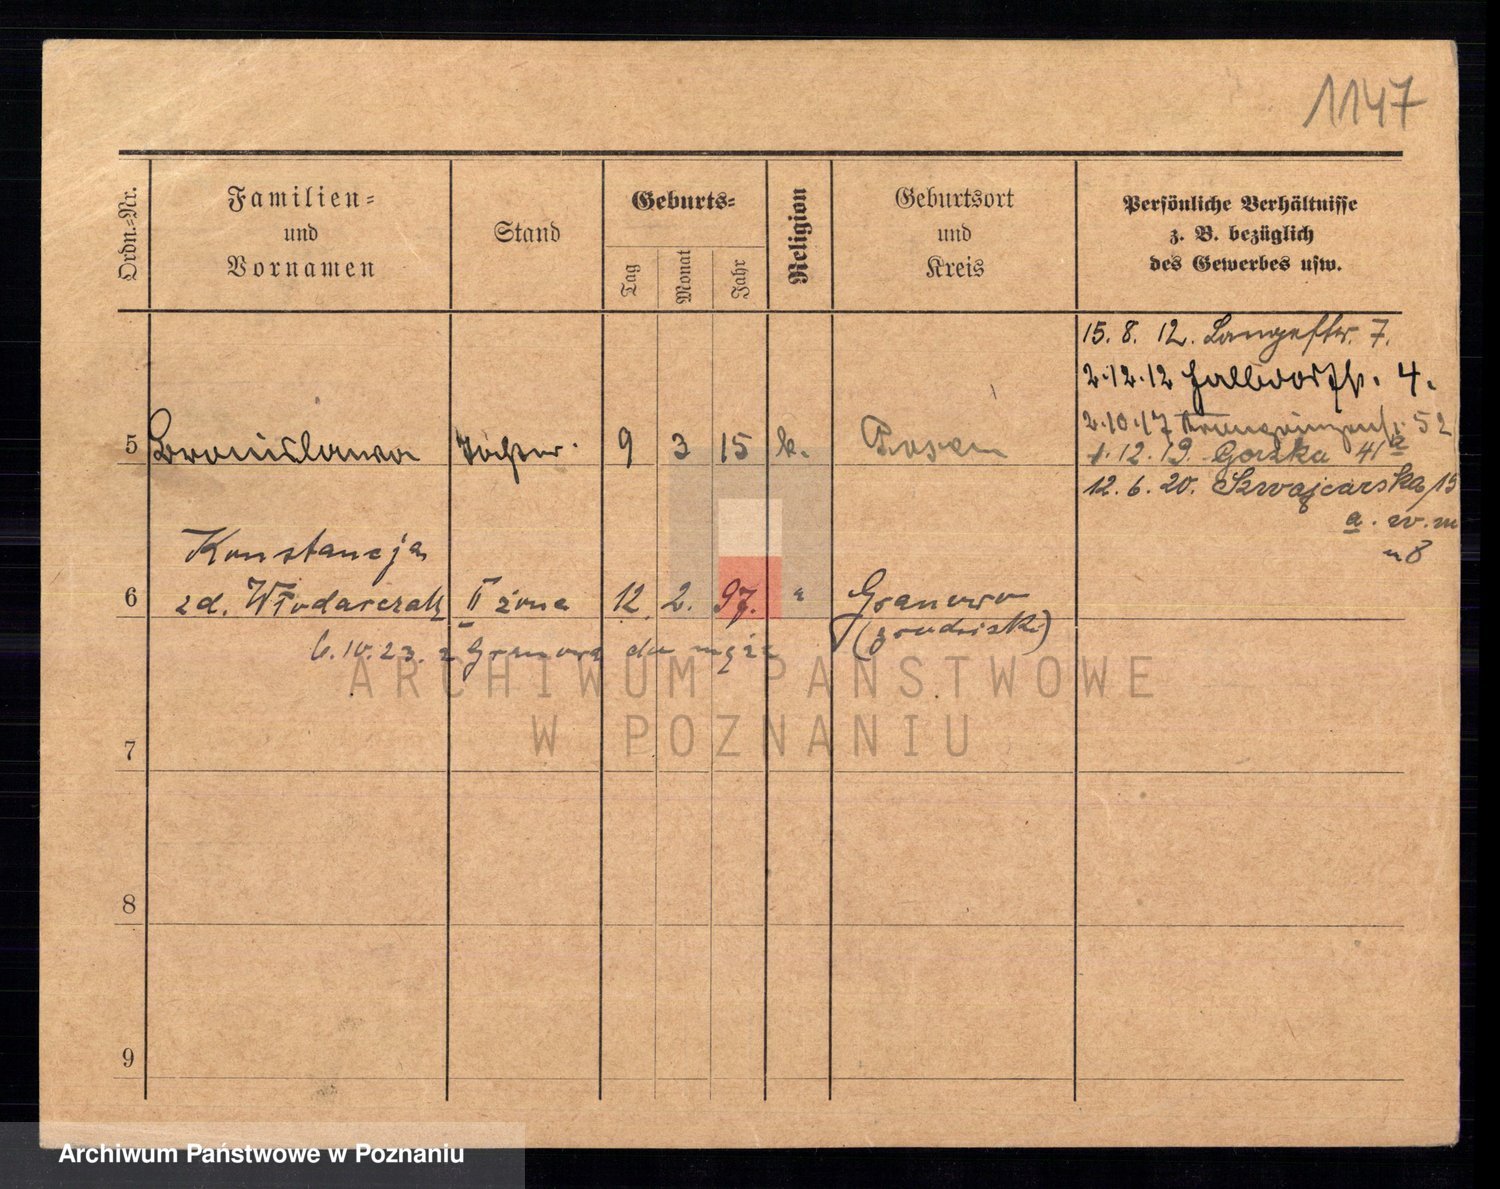 1147
Ordn.-Nr.
Familien-
und
Vornamen
Stand
Geburts-
Tag
Monat
Jahr
Religion
Geburtsort
und
Kreis
Persönliche Verhältnisse
z. B. bezüglich
des Gewerbes usw.
15. 8. 12. Langestr. 7.
2.12.12 Halbdorfstr. 4.
2.10.17 52
5 Bronislawa Tochter 9 3 15 k. Posen
1.12.19. Gorzka 41a
12.6.20. Szwajcarska 15
a. w. m
n 8
Konstancja
6 zd. Włodarczak II żona 12 2. 97. " Granowo
(grodziski)
6.10.23. z Granowa do męża
7
8
9
ARCHIWUM PAŃSTWOWE
W POZNANIU
Archiwum Państwowe w Poznaniu